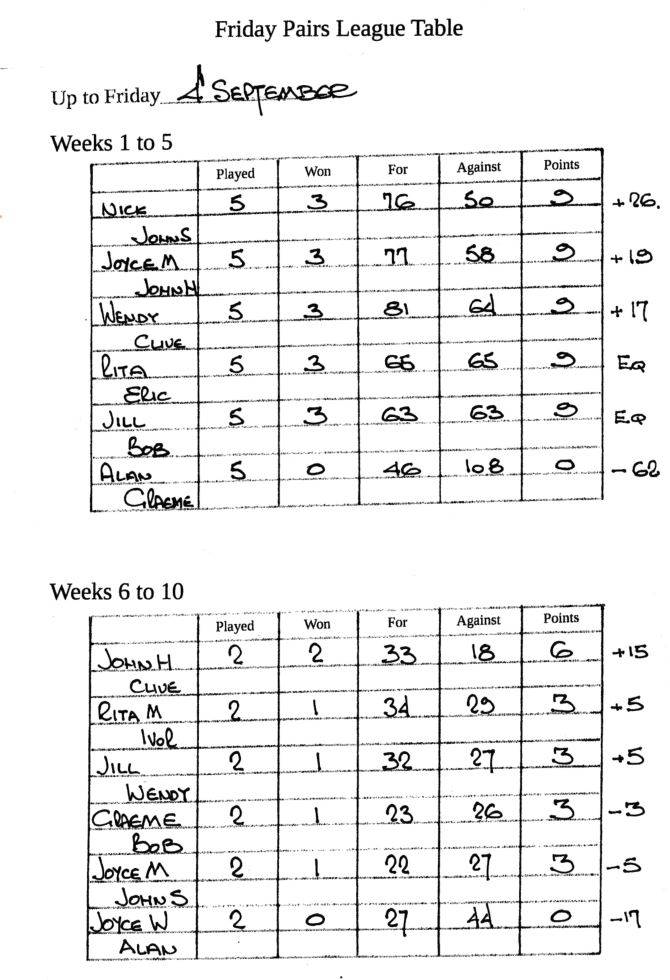 Friday Pairs League Table
Up to Friday 4 SEPTEMBER
Weeks 1 to 5
Played Won For Against Points
NICK 5 3 76 50 9 +26.
JOHN S
JOYCE M 5 3 77 58 9 +19
JOHN H
WENDY 5 3 81 64 9 +17
CLIVE
RITA 5 3 65 65 9 EQ
ERIC
JILL 5 3 63 63 9 EQ
BOB
ALAN 5 0 46 108 0 -62
GRAEME
Weeks 6 to 10
Played Won For Against Points
JOHN H 2 2 33 18 6 +15
CLIVE
RITA M 2 1 34 29 3 +5
IVOR
JILL 2 1 32 27 3 +5
WENDY
GRAEME 2 1 23 26 3 -3
BOB
JOYCE M 2 1 22 27 3 -5
JOHN S
JOYCE W 2 0 27 44 0 -17
ALAN